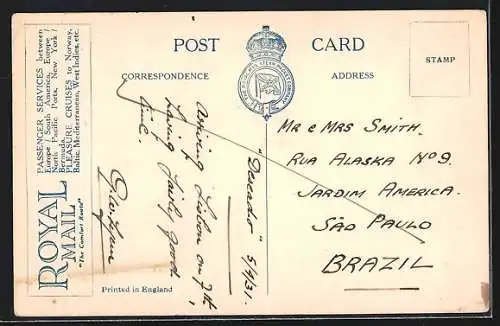 PASSENGER SERVICES between
Europe / South America, Europe /
North Pacific Ports, New York /
Bermuda.
PLEASURE CRUISES to Norway,
Baltic, Mediterranean, West Indies, etc.
ROYAL
MAIL
"The Comfort Route"
POST CARD
CORRESPONDENCE
ADDRESS
STAMP
"Deseado" 5/4/31.
Arriving Lisbon on 7th,
having fairly good
time.
Mr & Mrs Smith.
Rua Alaska Nº 9.
Jardim America.
São Paulo
BRAZIL
Printed in England